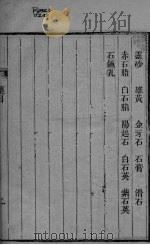 靈砂　雄黃　金牙石　石膏　滑石
赤石脂　白石脂　陽起石　白石英　紫石英
石鍾乳